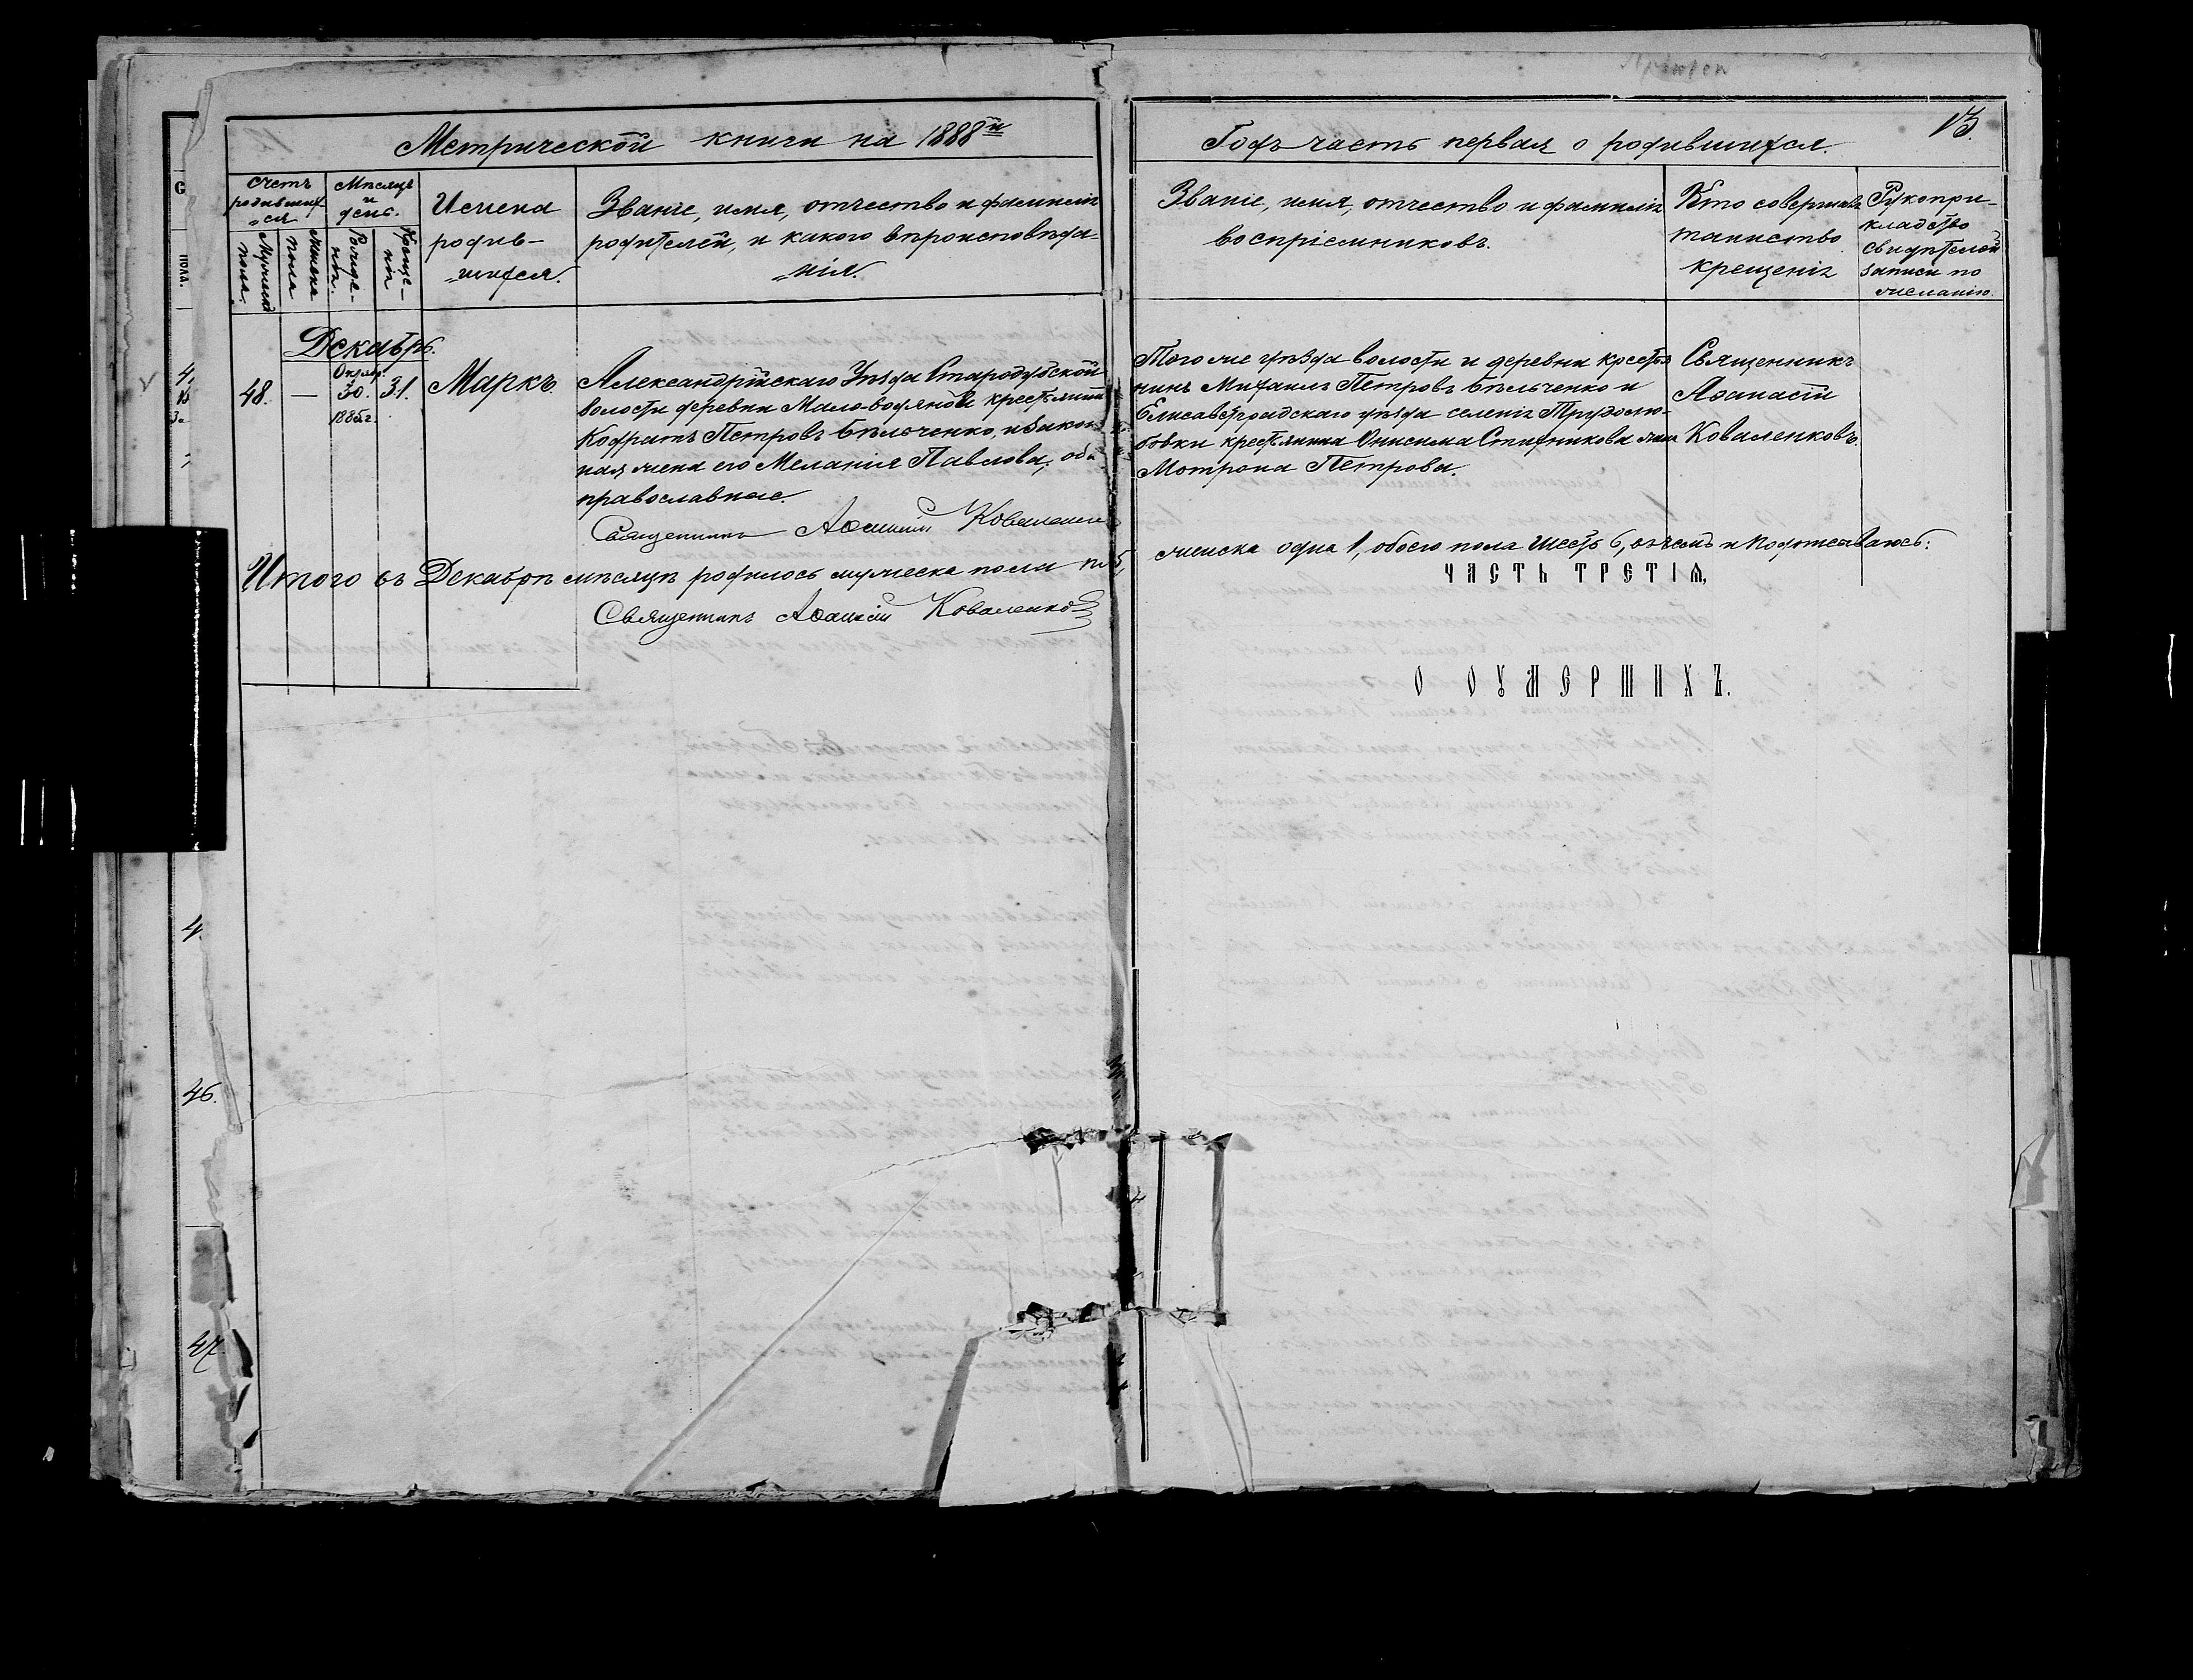 Метрической книги на 1888й
Годъ часть первая о родившихся.
13.
счетъ родившихся
Мѣсяцъ и день.
Имена родив-
шихся.
Званіе, имя, отчество и фамилія
родителей, и какого вѣроисповѣда-
нія.
Мужеска пола.
Женска пола
Рожде-
нія.
Креще-
нія
Званіе, имя, отчество и фамилія
воспріемниковъ.
Кто совершалъ
таинство
крещенія
Рукопри-
кладство
свидѣтелей
записи по
желанію.
Декабрь.
48.
—
Октяб.
30.
1885 г.
31.
Маркъ.
Александрійскаго Уѣзда Стародубской
волости деревни Мало-водяной крестьянинъ
Кодратъ Петровъ Бѣльченко, и закон-
ная жена его Меланія Павлова, оба
православные.
Священникъ Аѳанасій Коваленковъ
Того же уѣзда волости и деревни кресть-
нинъ Михаилъ Петровъ Бѣльченко и
Елисаветградскаго уѣзда селенія Трудолю-
бовки крестьянина Онисима жена
Мотрона Петрова.
Священникъ
Аѳанасій
Коваленковъ.
Итого въ Декабрѣ мѣсяцѣ родилось мужеска пола 5,
женска одна 1, обоего пола шесть 6, въ чемъ и подписываюсь:
Священникъ Аѳанасій Коваленковъ
ЧАСТЬ ТРЕТІЯ,
О ОУМЕРШИХЪ.
4.
46.
47.